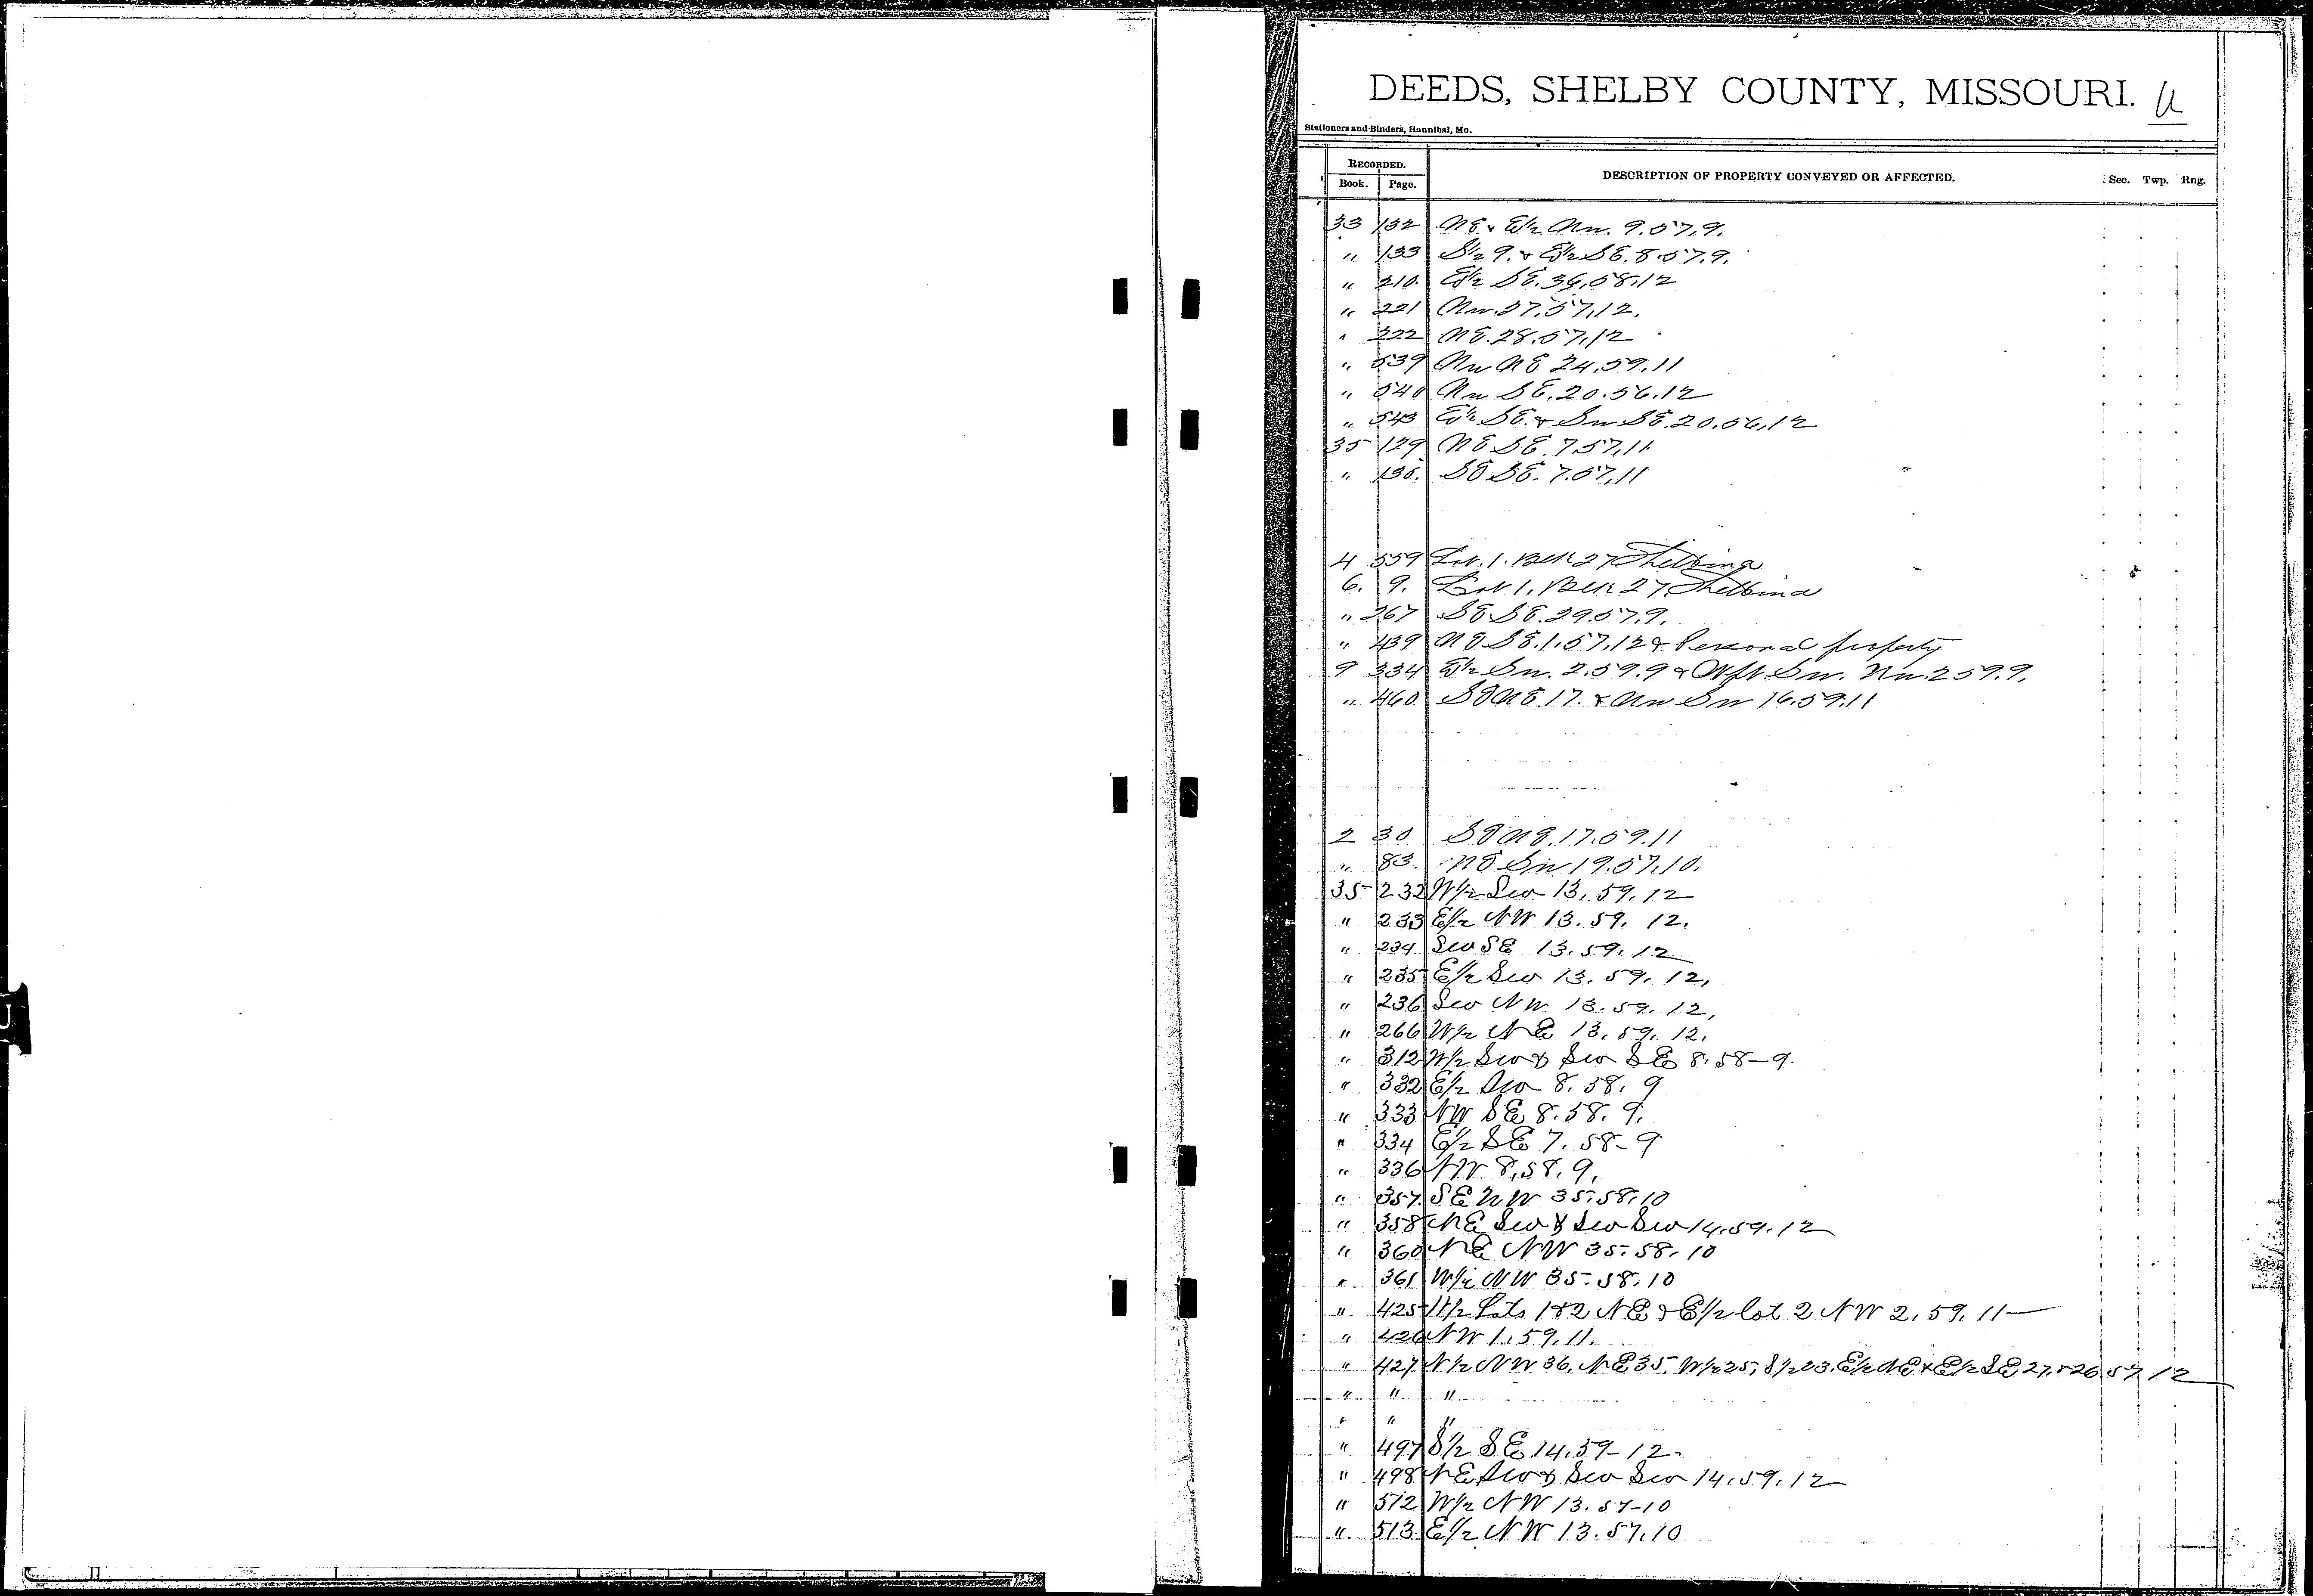 DEEDS, SHELBY COUNTY, MISSOURI. U
Stationers and Binders, Hannibal, Mo.
RECORDED.
Book. Page. DESCRIPTION OF PROPERTY CONVEYED OR AFFECTED. Sec. Twp. Rng.
33 132 NE & E1/2 Nw. 9.57.9.
" 133 S1/2 9. & E1/2 SE. 8.57.9.
" 210. E1/2 SE. 36,58,12
" 221 Nw. 27.57,12.
" 222 NE. 28.57,12
" 539 Nw NE 24.59.11
" 540 Nw SE. 20.56.12
" 543 E1/2 SE. & Sw SE. 20.56,12
35 129 NE SE. 7.57,11
" 130. SE SE. 7.57,11
4 559 Lot. 1. Blk 27 Shelbina
6. 9. Lot 1, Blk 27 Shelbina
" 267 SE SE. 29.57.9.
" 439 NE SE. 1.57.12 & Personal property
9 334 E1/2 Sw. 2.59.9 & Wpt Sw. Nw. 2 59.9.
" 460 SE NE. 17. & Nw Sw 16.59.11
2 30 SE NE. 17.59.11
" 83. NE Sw 19.57.10.
35 232 W1/2 Sw 13. 59. 12
" 233 E1/2 NW 13. 59. 12.
" 234 Sw SE 13. 59. 12
" 235 E1/2 Sw 13. 59. 12,
" 236 Sw NW 13. 59. 12,
" 266 W1/2 NE 13. 59. 12.
" 312 W1/2 Sw & Sw SE 8. 58-9.
" 332 E1/2 Sw 8. 58. 9
" 333 NW SE 8. 58. 9.
" 334 E1/2 SE 7. 58-9
" 336 NW 8, 58. 9.
" 357. SE NW 35. 58. 10
" 358 NE Sw & Sw Sw 14. 59. 12
" 360 NE NW 35. 58. 10
" 361 W1/2 NW 35. 58. 10
" 425 W1/2 Lots 1 & 2 NE & E1/2 lot 2 NW 2. 59. 11
" 426 NW 1. 59. 11.
" 427 N1/2 NW 36. NE 35. W1/2 25, S1/2 23. E1/2 NE & E1/2 SE 27. & 26. 57. 12
" " "
" " "
" 497 S1/2 SE 14. 59-12-
" 498 NE Sw & Sw Sw 14. 59. 12
" 512 W1/2 NW 13. 57-10
" 513 E1/2 NW 13. 57. 10
U